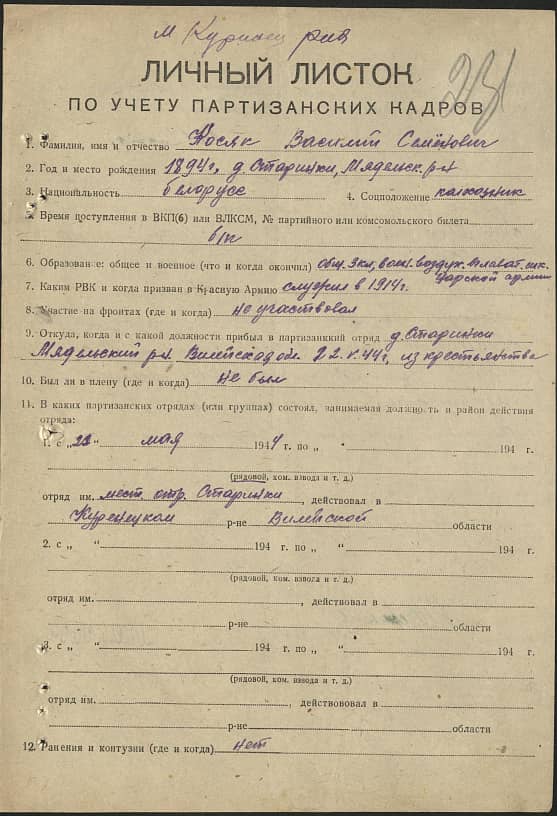 м Куренец рна
231
ЛИЧНЫЙ ЛИСТОК
ПО УЧЕТУ ПАРТИЗАНСКИХ КАДРОВ
1. Фамилия, имя и отчество Косяк Василий Семёнович
2. Год и место рождения 1894г, д. Старинки, Мядельск. р-н
3. Национальность белорусс 4. Соцположение колхозник
5. Время поступления в ВКП(б) или ВЛКСМ, № партийного или комсомольского билета
б/п
6. Образование: общее и военное (что и когда окончил) общ. 3 кл, воен. воздух. плават. шк.
царской армии
7. Каким РВК и когда призван в Красную Армию служил в 1914г.
8. Участие на фронтах (где и когда) не участвовал
9. Откуда, когда и с какой должности прибыл в партизанский отряд д. Старинки
Мядельский р-н. Вилейской об. 22.V.44г, из крестьянства
10. Был ли в плену (где и когда) не был
11. В каких партизанских отрядах (или группах) состоял, занимаемая должность и район действия
отряда:
1. с „22" мая 1944 г. по „ " 194 г.
(рядовой, ком. взвода и т. д.)
отряд им. мест. отр. Старинки, действовал в
Куренецком р-не Вилейской области
2. с „ " 194 г. по „ " 194 г.
(рядовой, ком. взвода и т. д.)
отряд им. , действовал в
р-не области
3. с „ " 194 г. по „ " 194 г.
(рядовой, ком. взвода и т. д.)
отряд им. , действововал в
р-не области
12. Ранения и контузии (где и когда) нет